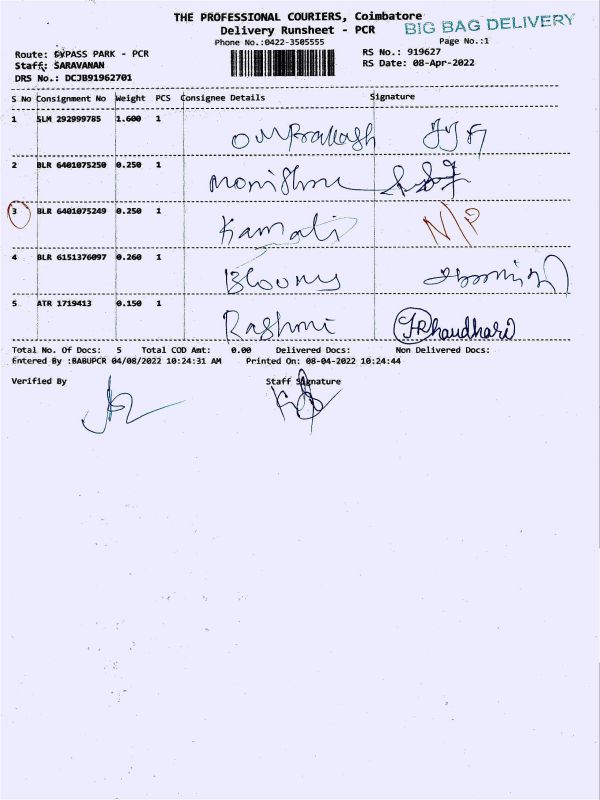 THE PROFESSIONAL COURIERS, Coimbatore
BIG BAG DELIVERY
Delivery Runsheet - PCR
Phone No.:0422-3505555
Page No.:1
Route: BYPASS PARK - PCR
RS No.: 919627
Staff: SARAVANAN
RS Date: 08-Apr-2022
DRS No.: DCJB91962701
S No Consignment No Weight PCS Consignee Details Signature
1 SLM 292999785 1.600 1 Omprakash
2 BLR 6401075250 0.250 1
3 BLR 6401075249 0.250 1 Kamali N/P
4 BLR 6151376097 0.260 1
5 ATR 1719413 0.150 1 Rashmi JRChaudhari
Total No. Of Docs: 5 Total COD Amt: 0.00 Delivered Docs: Non Delivered Docs:
Entered By :BABUPCR 04/08/2022 10:24:31 AM Printed On: 08-04-2022 10:24:44
Verified By Staff Signature